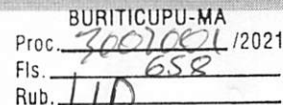 BURITICUPU-MA
Proc. 3007001 /2021
Fls. 658
Rub.